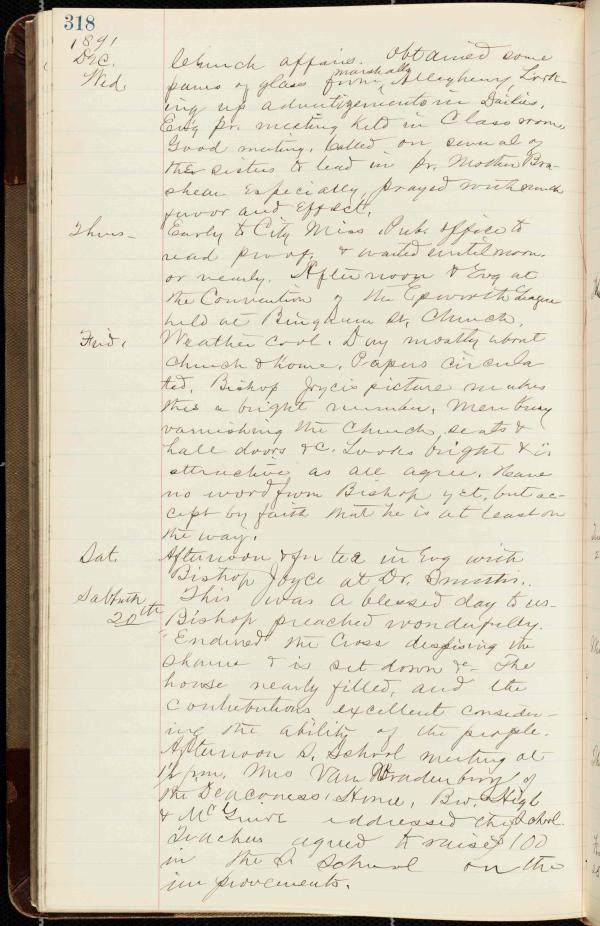 318
1891
Dec. Church affairs. Obtained some
Wed. panes of glass from Marshalls, Allegheny, Look-
ing up advertizements in Dailies.
Ev'g pr. meeting held in Class room,
Good meeting. Called on several of
the sisters to lead in pr. Mother Bra-
shear Especially, prayed with much
fervor and Effect.
Thurs- Early to City Miss. Pub. office to
read proof, & waited until noon
or nearly. Afternoon & Evg at
the Convention of the Epworth League
held at Bingham St. Church.
Frid. Weather cool. Day mostly about
church & home. Papers circula
ted. Bishop Joyce's picture makes
this a bright number. Men busy
varnishing the church seats &
hall doors &c. Looks bright & is
attractive as all agree. Have
no word from Bishop yet, but ac-
cept by faith that he is at least on
the way.
Sat. Afternoon & for tea in Evg with
Bishop Joyce at Dr. Smith's..
Sabbath This was a blessed day to us-
20th Bishop preached wonderfully.
"Endured the Cross despising the
shame & is set down &c- The
house nearly filled, and the
Contributions excellent consider-
ing the ability of the people.
Afternoon S. School meeting at
1½ pm. Mrs Van
the Deaconess' Home, Bro.
& addressed the School.
Teachers agreed to raise $100
in the S School on the
improvements.